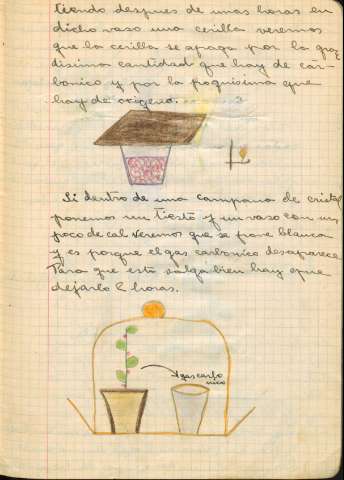 tiendo despues de unas horas en
dicho vaso una cerilla veremos
que la cerilla se apaga por la gra
disima cantidad que hay de car-
bonico y por la poquisima que
hay de oxigeno.
Si dentro de una campana de cristal
ponemos un tiesto y un vaso con un
poco de cal veremos que se pone blanca
y es porque el gas carbonico desaparece
Para que esto salga bien hay que
dejarlo 2 horas.
gas carbo
nico